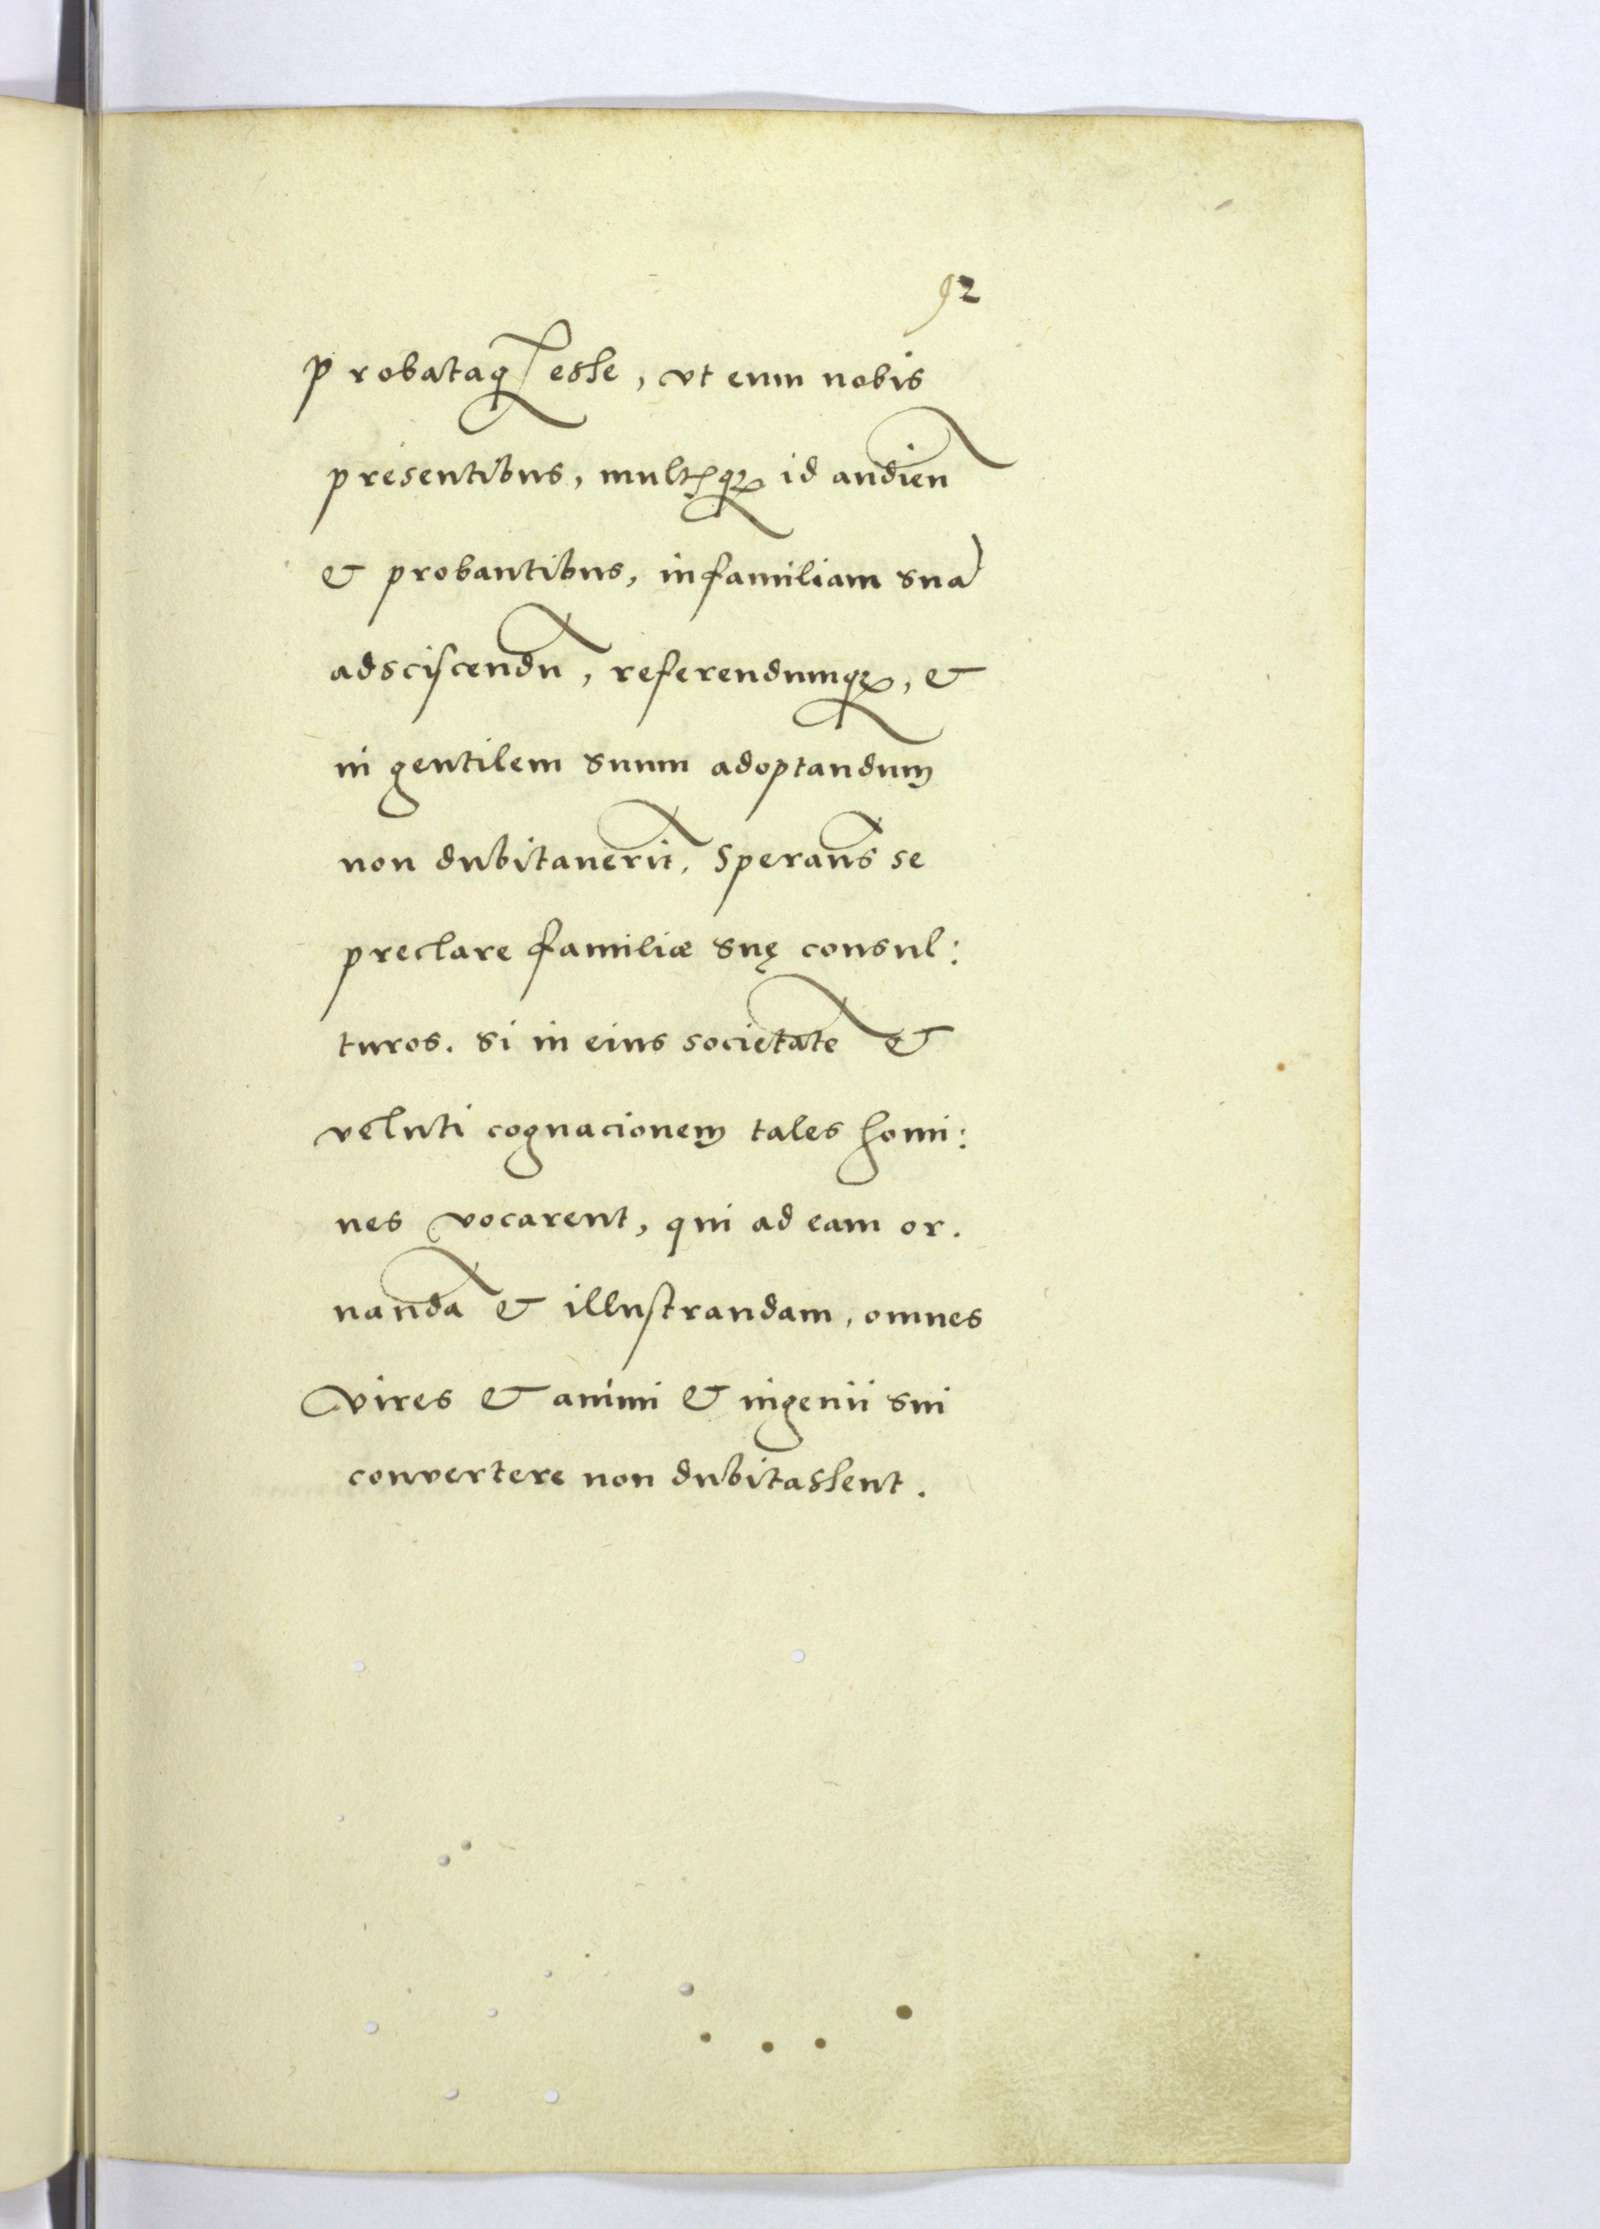 92
probataq esse, vt eum nobis
presentibus, multisqꝫ id audien̄
& probantibus, in familiam suā
adsciscendū, referendumqꝫ, &
in gentilem suum adoptandum
non dubitauerit. Sperans se
preclare familiæ suę consul:
turos. si in eius societatē &
veluti cognacionem tales homi:
nes vocarent, qui ad eam or.
nandā & illustrandam, omnes
vires & animi & ingenii sui
convertere non dubitassent.